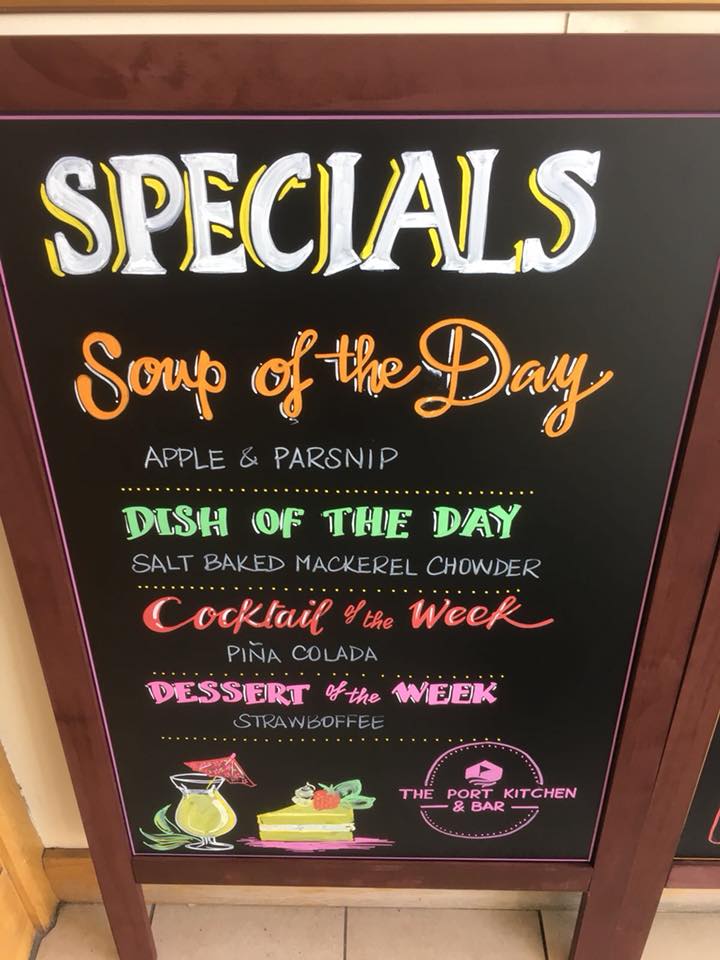 SPECIALS
Soup of the Day
APPLE & PARSNIP
DISH OF THE DAY
SALT BAKED MACKEREL CHOWDER
Cocktail of the Week
PIÑA COLADA
DESSERT of the WEEK
STRAWBOFFEE
THE PORT KITCHEN
& BAR